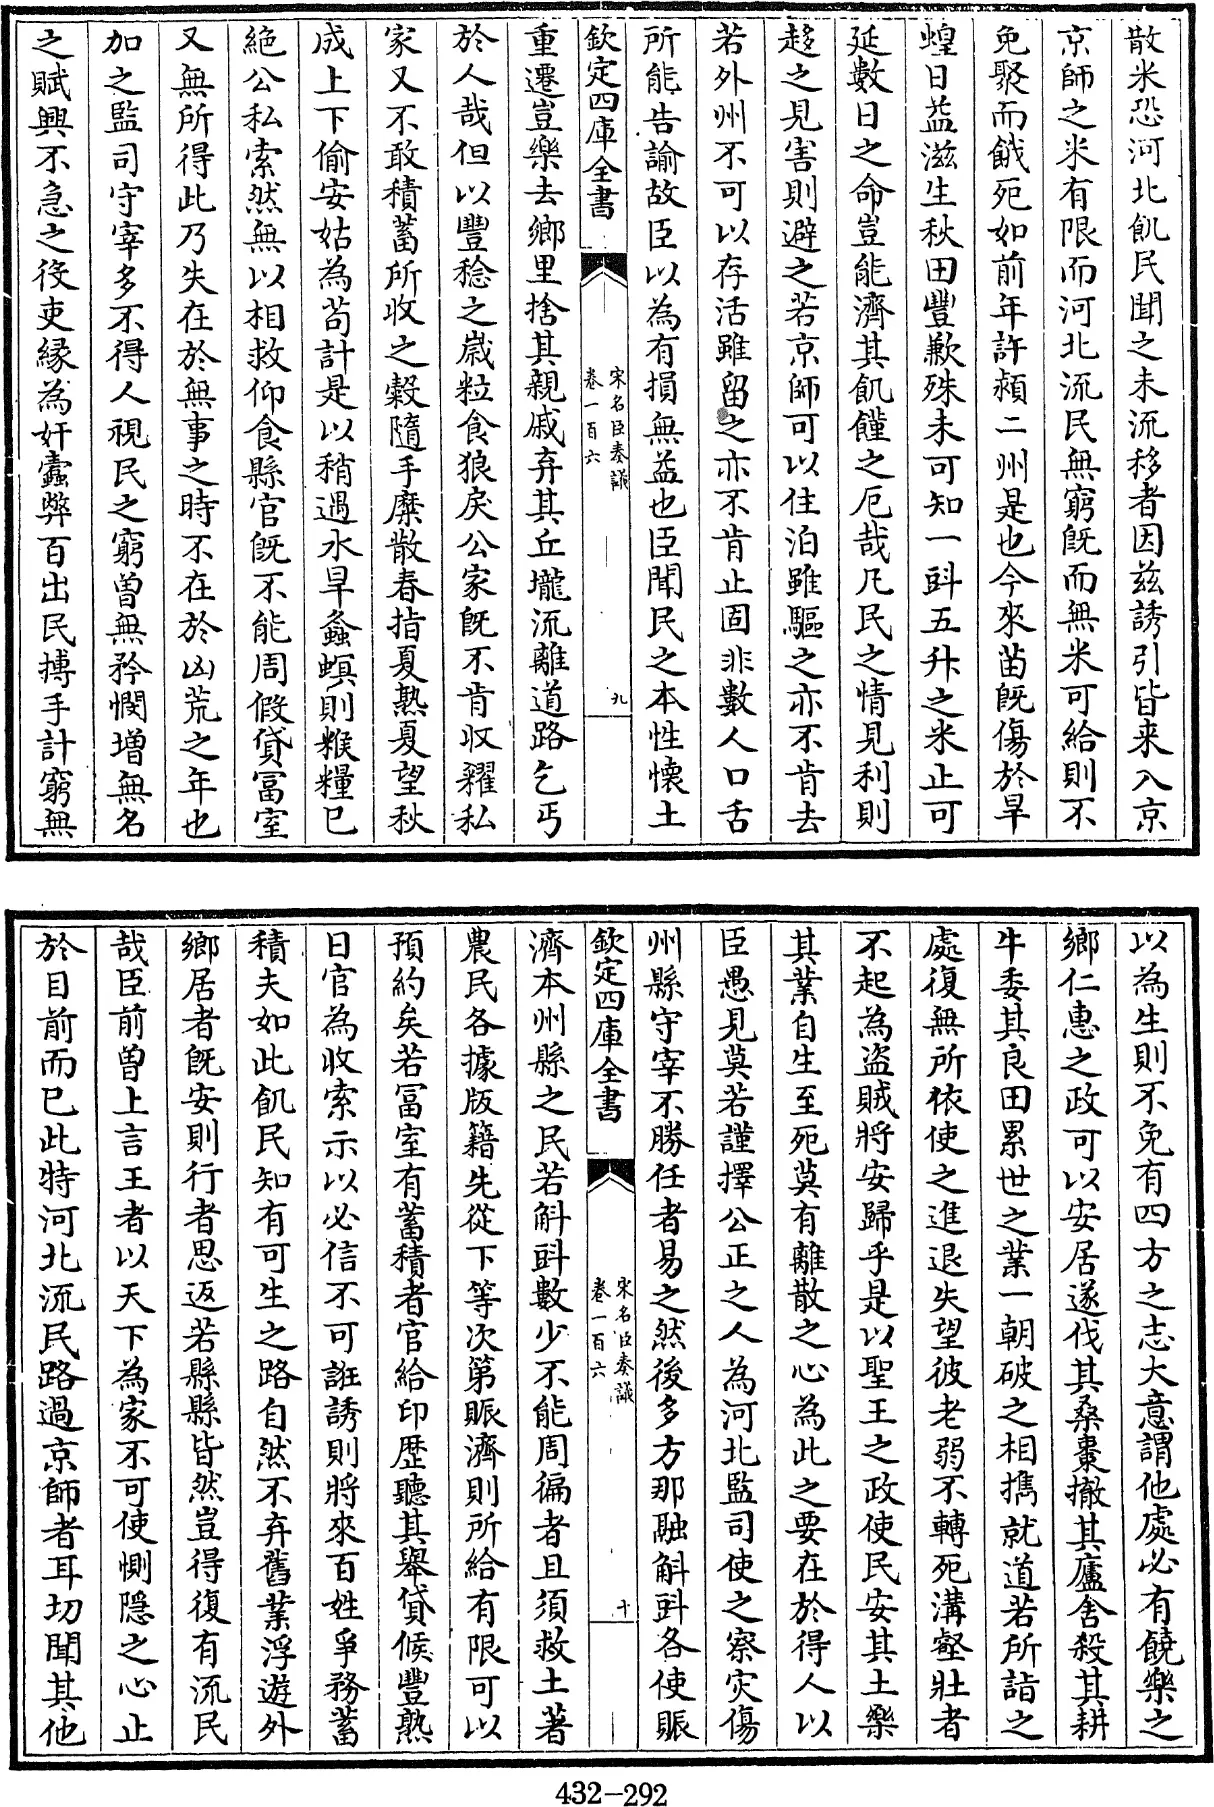 散米恐河北飢民聞之未流移者因兹誘引皆来入京
京師之米有限而河北流民無窮旣而無米可給則不
免聚而餓死如前年許潁二州是也今來苗旣傷於旱
蝗日益滋生秋田豐歉殊未可知一㪷五升之米止可
延數日之命豈能濟其飢饉之厄哉凡民之情見利則
趍之見害則避之若京師可以住泊雖驅之亦不肯去
若外州不可以存活雖留之亦不肯止固非數人口舌
所能告諭故臣以為有損無益也臣聞民之本性懷土
欽定四庫全書
宋名臣奏議
卷一百六
九
重遷豈樂去鄉里捨其親戚弃其丘壠流離道路乞丐
於人哉但以豐稔之嵗粒食狼戾公家旣不肯收糴私
家又不敢積蓄所收之穀隨手糜散春指夏熟夏望秋
成上下偷安姑為苟計是以稍遇水旱螽螟則糇糧已
絶公私索然無以相救仰食縣官旣不能周假貸冨室
又無所得此乃失在於無事之時不在於凶荒之年也
加之監司守宰多不得人視民之窮曽無矜憫増無名
之賦興不急之役吏縁為奸蠹弊百出民搏手計窮無
以為生則不免有四方之志大意謂他處必有饒樂之
鄉仁惠之政可以安居遂伐其桑棗撤其廬舍殺其耕
牛委其良田累世之業一朝破之相携就道若所詣之
處復無所依使之進退失望彼老弱不轉死溝壑壯者
不起為盗賊將安歸乎是以聖王之政使民安其土樂
其業自生至死莫有離散之心為此之要在於得人以
臣愚見莫若謹擇公正之人為河北監司使之察灾傷
州縣守宰不勝任者易之然後多方那融斛㪷各使賑
欽定四庫全書
宋名臣奏議
卷一百六
十
濟本州縣之民若斛㪷數少不能周徧者且須救土著
農民各據版籍先從下等次第賑濟則所給有限可以
預約矣若冨室有蓄積者官給印歴聽其舉貸候豐熟
日官為收索示以必信不可誑誘則將來百姓爭務蓄
積夫如此飢民知有可生之路自然不弃舊業浮遊外
鄉居者旣安則行者思返若縣縣皆然豈得復有流民
哉臣前曽上言王者以天下為家不可使惻隠之心止
於目前而已此特河北流民路過京師者耳切聞其他
432-292